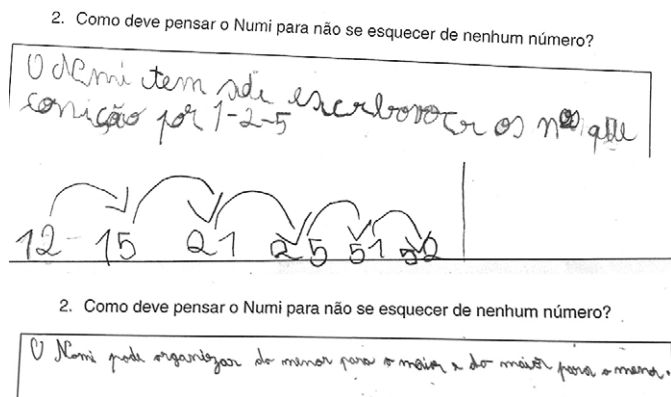 2. Como deve pensar o Numi para não se esquecer de nenhum número?
O Numi tem de os nos que
por 1-2-5
12 15 21 25 51 52
2. Como deve pensar o Numi para não se esquecer de nenhum número?
O Nomi pode organizar do menor para o maior e do maior para o menor.